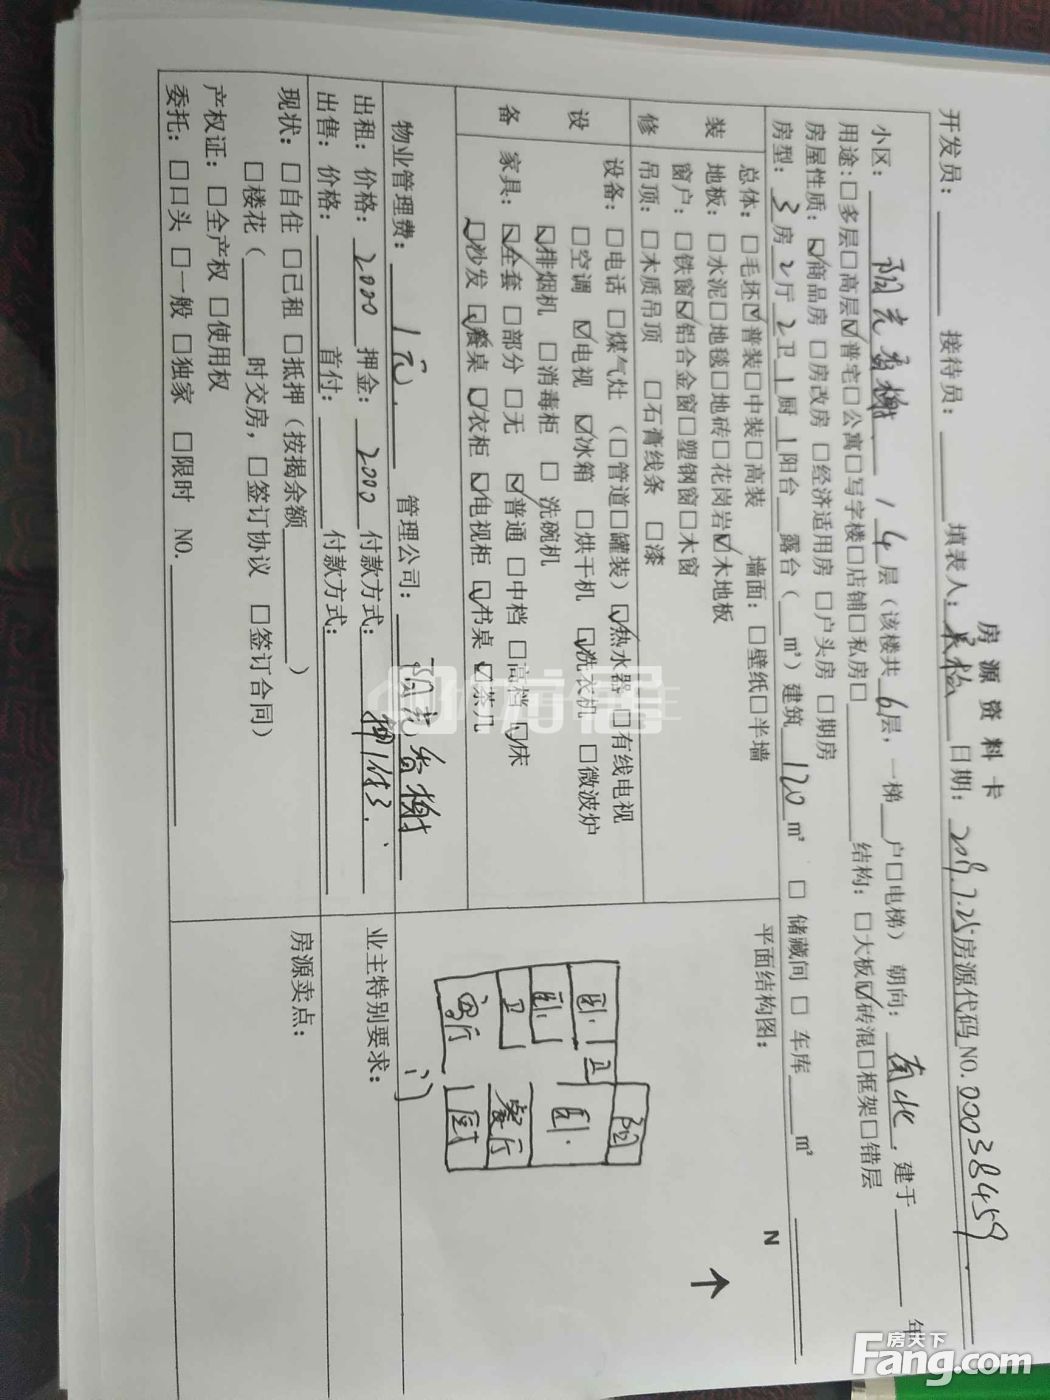 房源资料卡
开发员：______ 接待员：______ 填表人：______ 日期：2019.7.25 房源代码NO.00038459
小区：阳光香榭 / 4层（该楼共6层，一梯__户□电梯）朝向：南北，建于______年
用途：□多层□高层☑普宅□公寓□写字楼□店铺□私房□______结构：□大板☑砖混□框架□错层
房屋性质：☑商品房 □房改房 □经济适用房 □户头房 □期房
房型：3房2厅2卫1厨1阳台__露台（__m²）建筑120m² □ 储藏间 □ 车库____m²
装修
总体：□毛坯☑普装□中装□高装 墙面：□壁纸□半墙
地板：□水泥□地毯□地砖□花岗岩☑木地板
窗户：□铁窗☑铝合金窗□塑钢窗□木窗
吊顶：□木质吊顶 □石膏线条 □漆
设备
设备：□电话□煤气灶（□管道□罐装）☑热水器□有线电视
□空调 ☑电视 ☑冰箱 □烘干机 ☑洗衣机 □微波炉
☑排烟机 □消毒柜 □ 洗碗机
家具：☑全套□部分□无 ☑普通□中档□高档☑床
☑沙发☑餐桌☑衣柜☑电视柜☑书桌☑茶几
物业管理费：1元. 管理公司：阳光香榭
出租：价格：2000 押金：2000 付款方式：押1付3.
出售：价格：______ 首付：______ 付款方式：______
现状：□自住 □已租 □抵押（按揭余额______）
□楼花（______时交房，□签订协议 □签订合同）
产权证：□全产权 □使用权
委托：□口头 □一般 □独家 □限时 NO.______
平面结构图：
N
阳
卧 卫
卧 卧
卫 餐厅
客厅 厨
门
业主特别要求：
房源卖点：
房天下
Fang.com